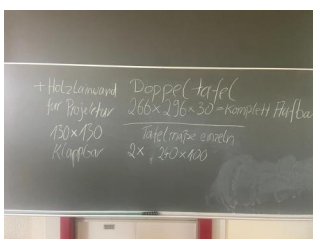 + Holzlainwand
für Projektor
130×130
Klappbar
Doppeltafel
266×296×30 = Komplett Aufba
Tafelmaße einzeln
2× 240×100